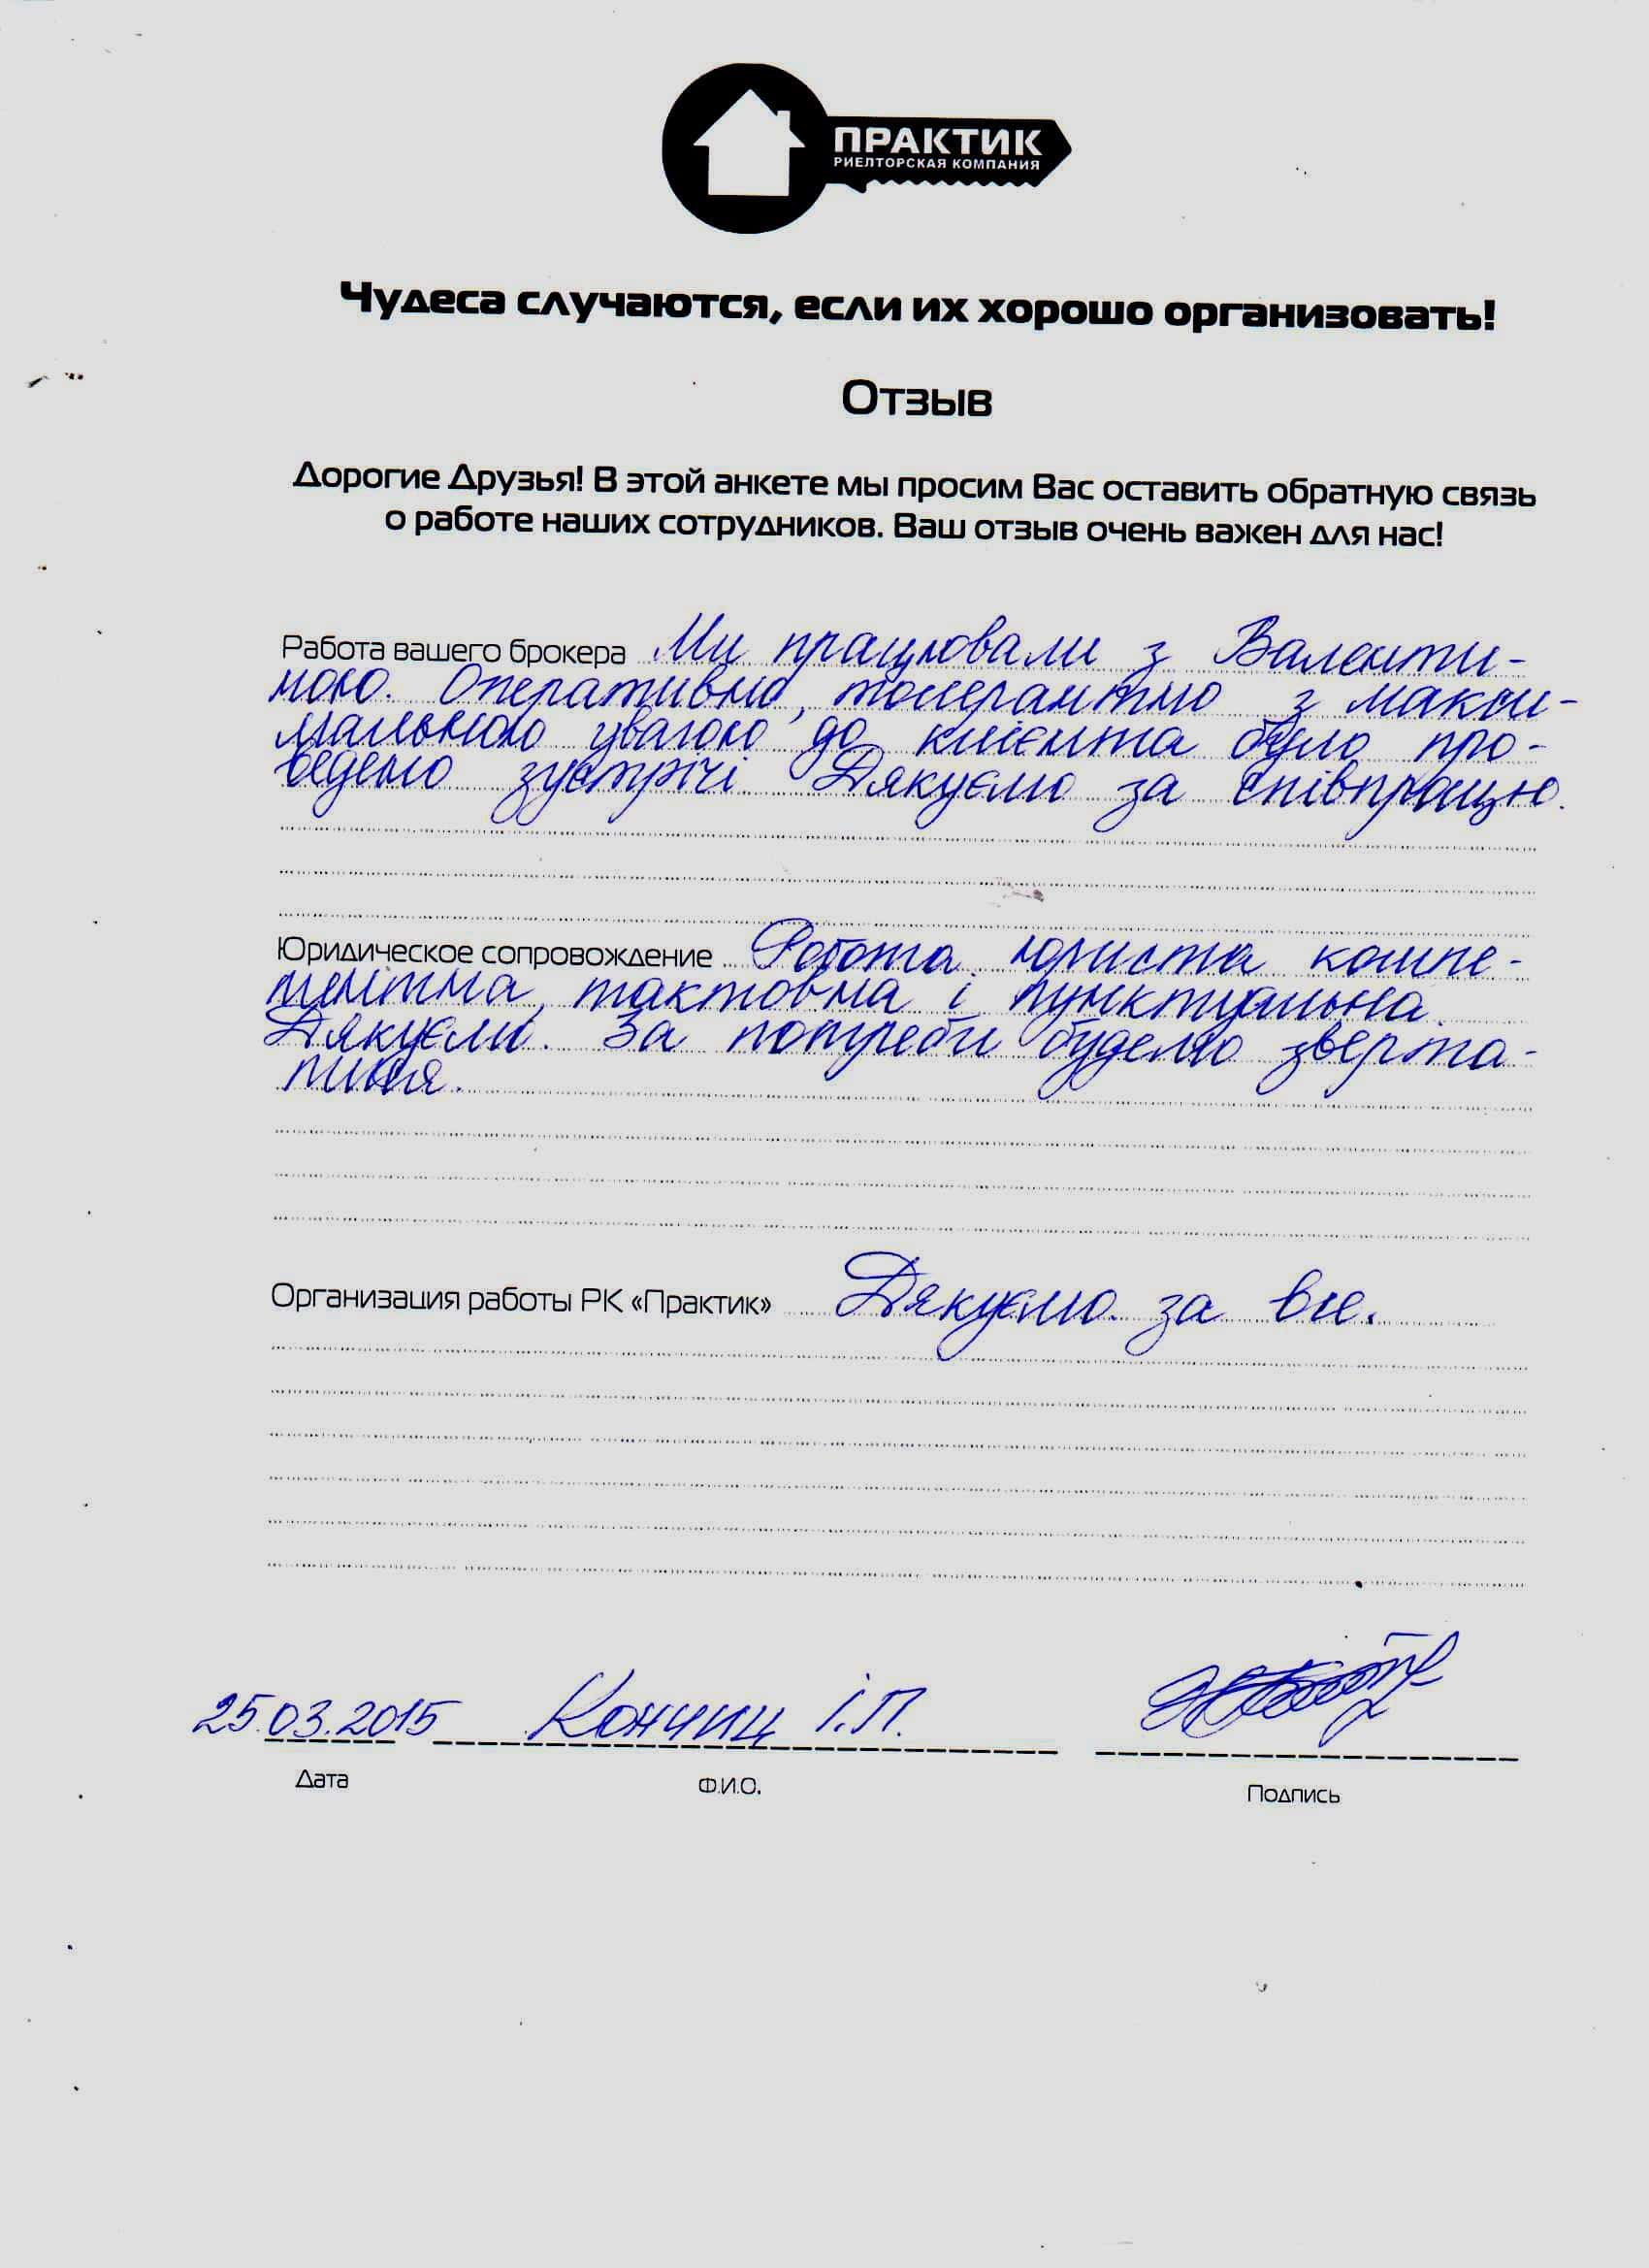 ПРАКТИК
РИЕЛТОРСКАЯ КОМПАНИЯ
Чудеса случаются, если их хорошо организовать!
Отзыв
Дорогие Друзья! В этой анкете мы просим Вас оставить обратную связь
о работе наших сотрудников. Ваш отзыв очень важен для нас!
Работа вашего брокера Ми працювали з Валенти-
ною. Оперативно, толерантно з макси-
мальною увагою до клієнта було про-
ведено зустрічі. Дякуємо за співпрацю.
Юридическое сопровождение Робота юриста компе-
тентна, тактовна і пунктуальна.
Дякуємо. За потреби будемо зверта-
тися.
Организация работы РК «Практик» Дякуємо за все.
25.03.2015 Кончиц І.П.
Дата Ф.И.О. Подпись